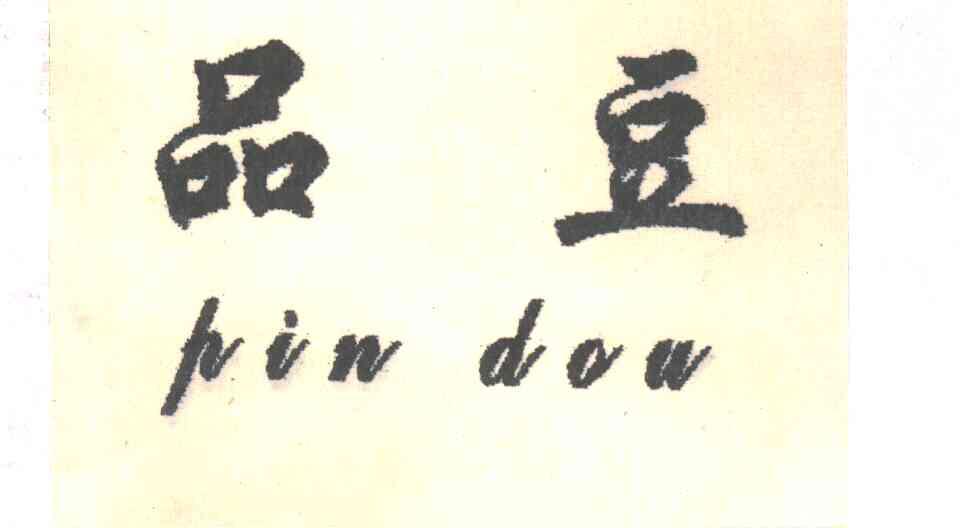 品豆
pin dou